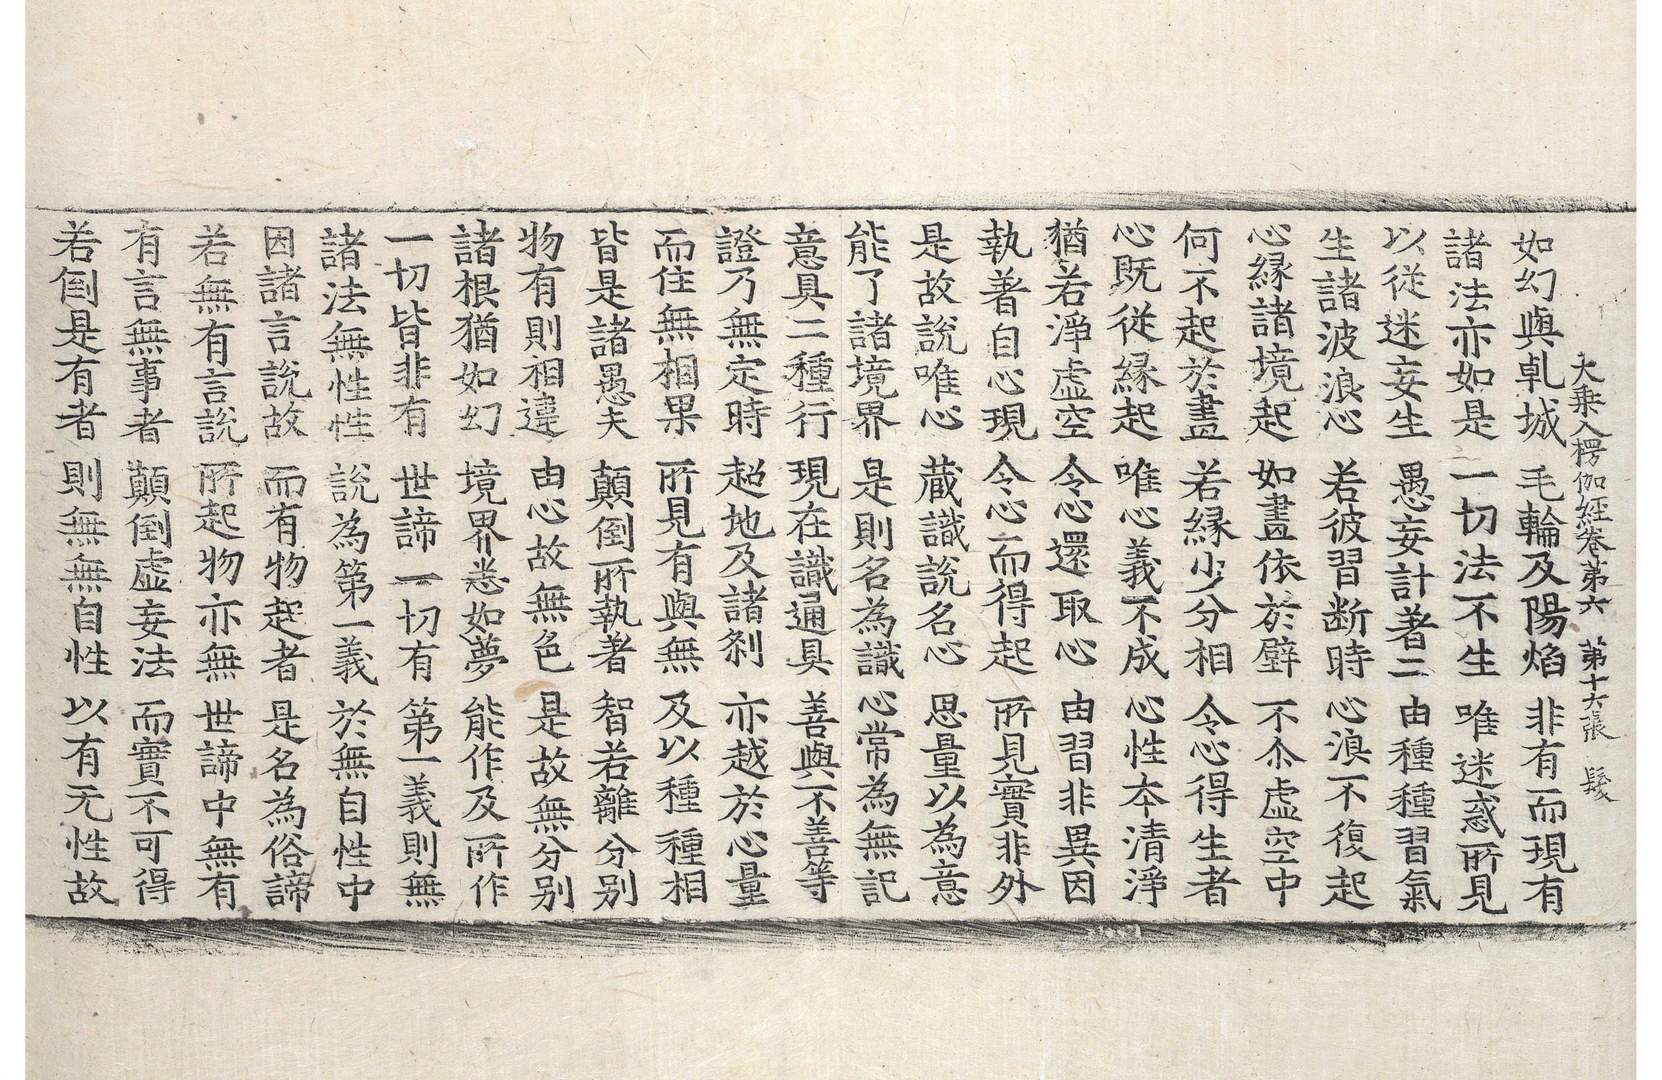 大乘入楞伽經卷第六 第十六張 髮
如幻與乹城 毛輪及陽焰 非有而現有
諸法亦如是 一切法不生 唯迷惑所見
以從迷妄生 愚妄計著二 由種種習氣
生諸波浪心 若彼習断時 心浪不復起
心縁諸境起 如畫依於壁 不尒虛空中
何不起於畫 若縁少分相 令心得生者
心既從縁起 唯心義不成 心性夲清淨
猶若淨虛空 令心還取心 由習非異因
執著自心現 令心而得起 所見實非外
是故說唯心 藏識說名心 思量以為意
能了諸境界 是則名為識 心常為無記
意具二種行 現在識通具 善與不善等
證乃無定時 超地及諸剎 亦越於心量
而住無相果 所見有與無 及以種種相
皆是諸愚夫 顛倒所執著 智若離分別
物有則相違 由心故無色 是故無分別
諸根猶如幻 境界悉如夢 能作及所作
一切皆非有 世諦一切有 第一義則無
諸法無性性 說為第一義 於無自性中
因諸言說故 而有物起者 是名為俗諦
若無有言說 所起物亦無 世諦中無有
有言無事者 顛倒虛妄法 而實不可得
若倒是有者 則無無自性 以有无性故